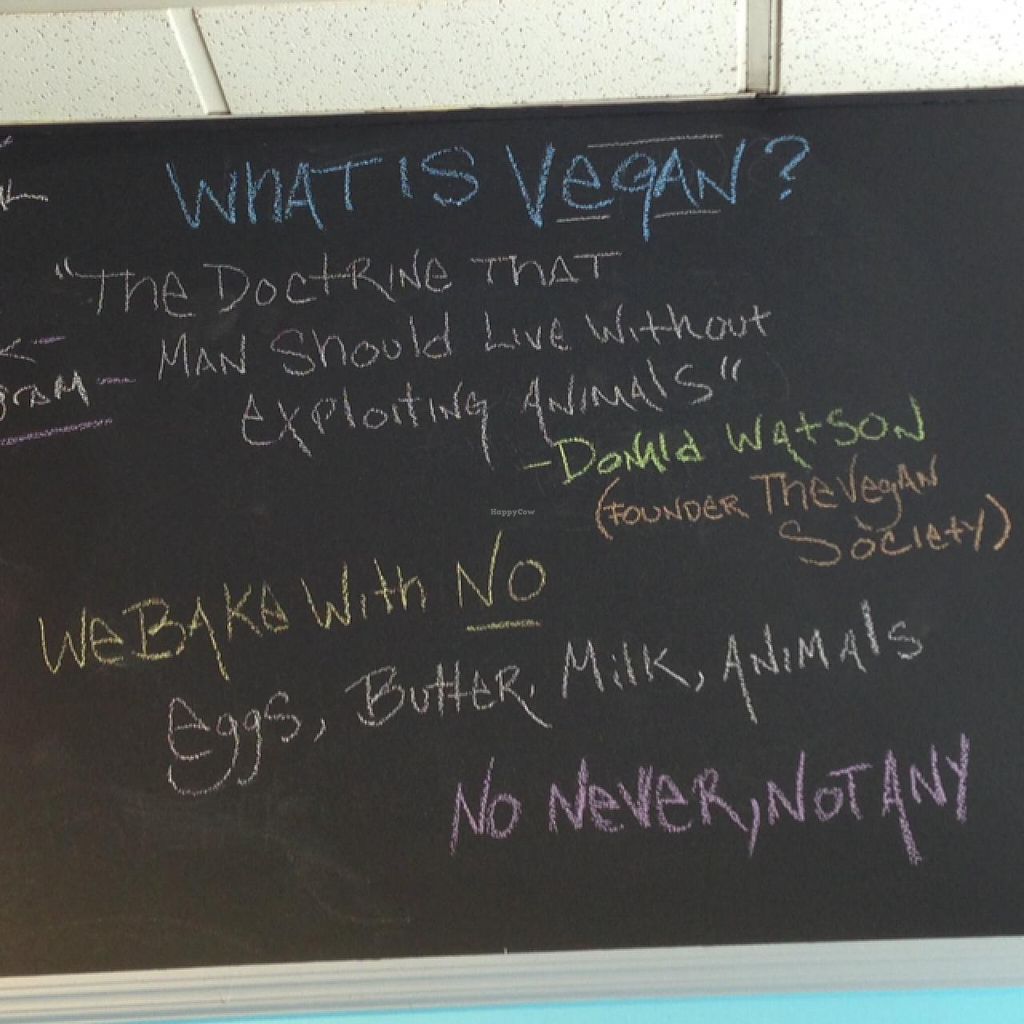 WHAT IS VegAN?
"The DoctRiNe THAT
MAN Should Live Without
exploiting ANiMAls"
-Donald WAtSON
(FOUNDER The Vegan
Society)
HappyCow
We BAKe With NO
eggs, ButteR, Milk, ANiMAls
No NeVeR, NOT ANY